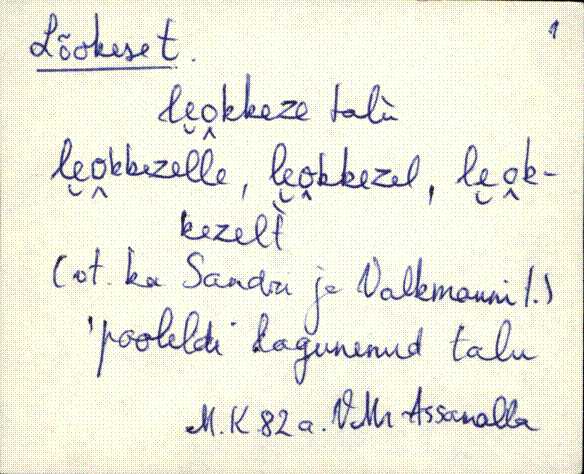 1
Lõokeset.
le̮o̭kkeze talù
le̮o̭kkezelle, le̮o̭kkezel, le̮o̭k-
kezelt̀
(vt. ka Sandri ja Valkmanni t.)
'pooleldi lagunenud talu
M.K 82 a. VMr Assamalla